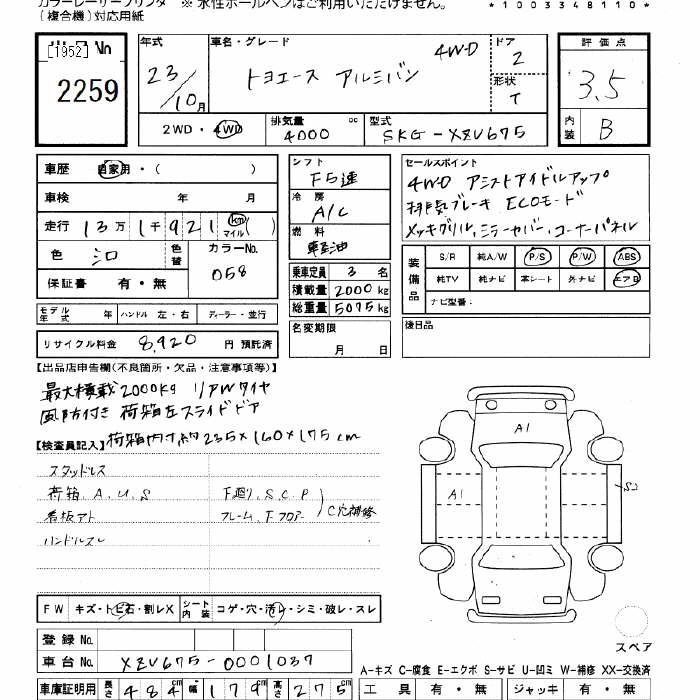 カラーレーザープリンタ ※ 水性ボールペンはご利用いただけません。
(複合機)対応用紙
*1003348110*
出品No
[1952]
2259
年式 車名・グレード 4WD ドア 2
23/10月 トヨエース アルミバン
形状 T
2WD・4WD 排気量 4000 cc 型式 SKG-XZU675
評価点 3.5
内装 B
車歴 自家用・( )
車検 年 月
走行 13万1千921 km マイル ( )
色 シロ 色替 カラーNo. 058
保証書 有・無
シフト F5速
冷房 A/C
燃料 軽油
乗車定員 3名
積載量 2000kg
総重量 5075kg
名変期限
月 日
セールスポイント
4WD アシストアイドルアップ
排気ブレーキ ECOモード
メッキグリル,ミラーカバー,コーナーパネル
装備品
S/R 純A/W P/S P/W ABS
純TV 純ナビ 革シート 外ナビ エアB
ナビ型番:
後日品
モデル年式 年 ハンドル 左・右 ディーラー・並行
リサイクル料金 8,920 円 預託済
【出品店申告欄(不良箇所・欠品・注意事項等)】
最大積載2000kg リアWタイヤ
風防付き 荷箱左スライドドア
荷箱内寸約235×160×175cm
【検査員記入】
スタッドレス
荷箱 A.U.S F廻り.S.C.P
看板アト フレーム.Fフロアー C穴補修
ハンドルスレ
A1
A1
S2
FW キズ・トビ石・割レX シート内装 コゲ・穴・汚レ・シミ・破レ・スレ
登録No.
車台No. XZU675-0001037
スペア
A-キズ C-腐食 E-エクボ S-サビ U-凹ミ W-補修 XX-交換済
車庫証明用 長さ 484cm 幅 179cm 高さ 275cm
工具 有・無 ジャッキ 有・無